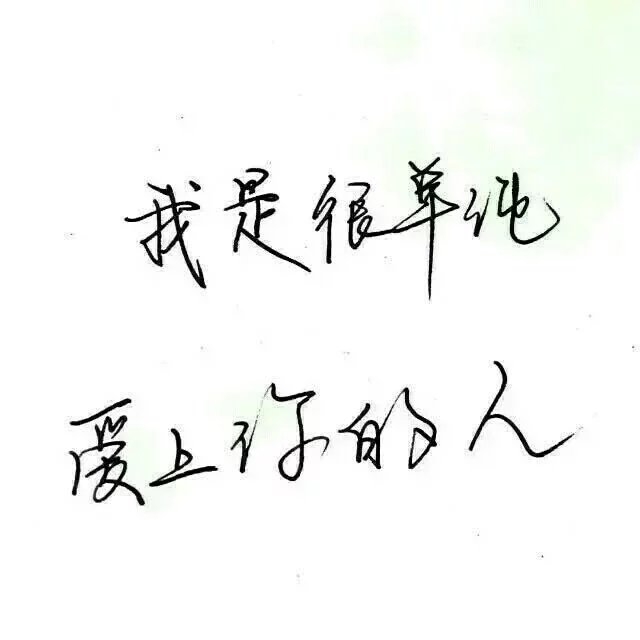 我是很单纯
爱上你的人